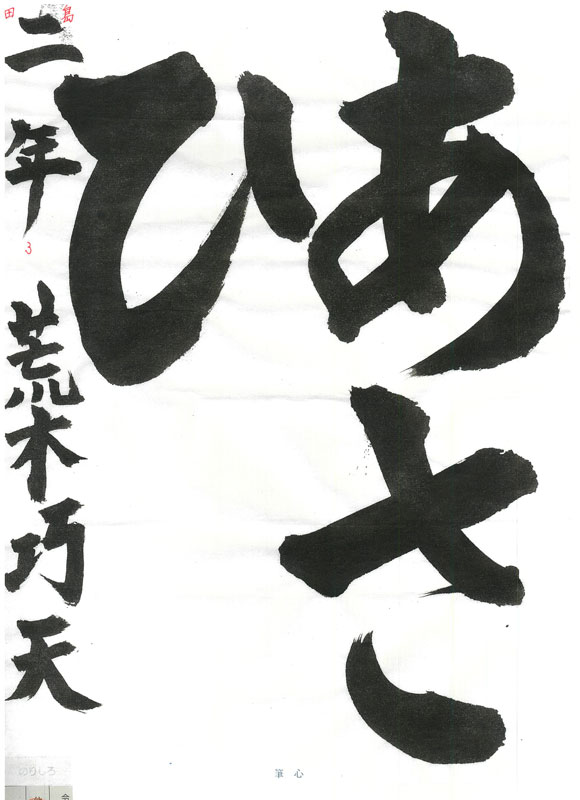 あさ
ひ
二年 荒木巧天
島
田
3
のりしろ
心筆